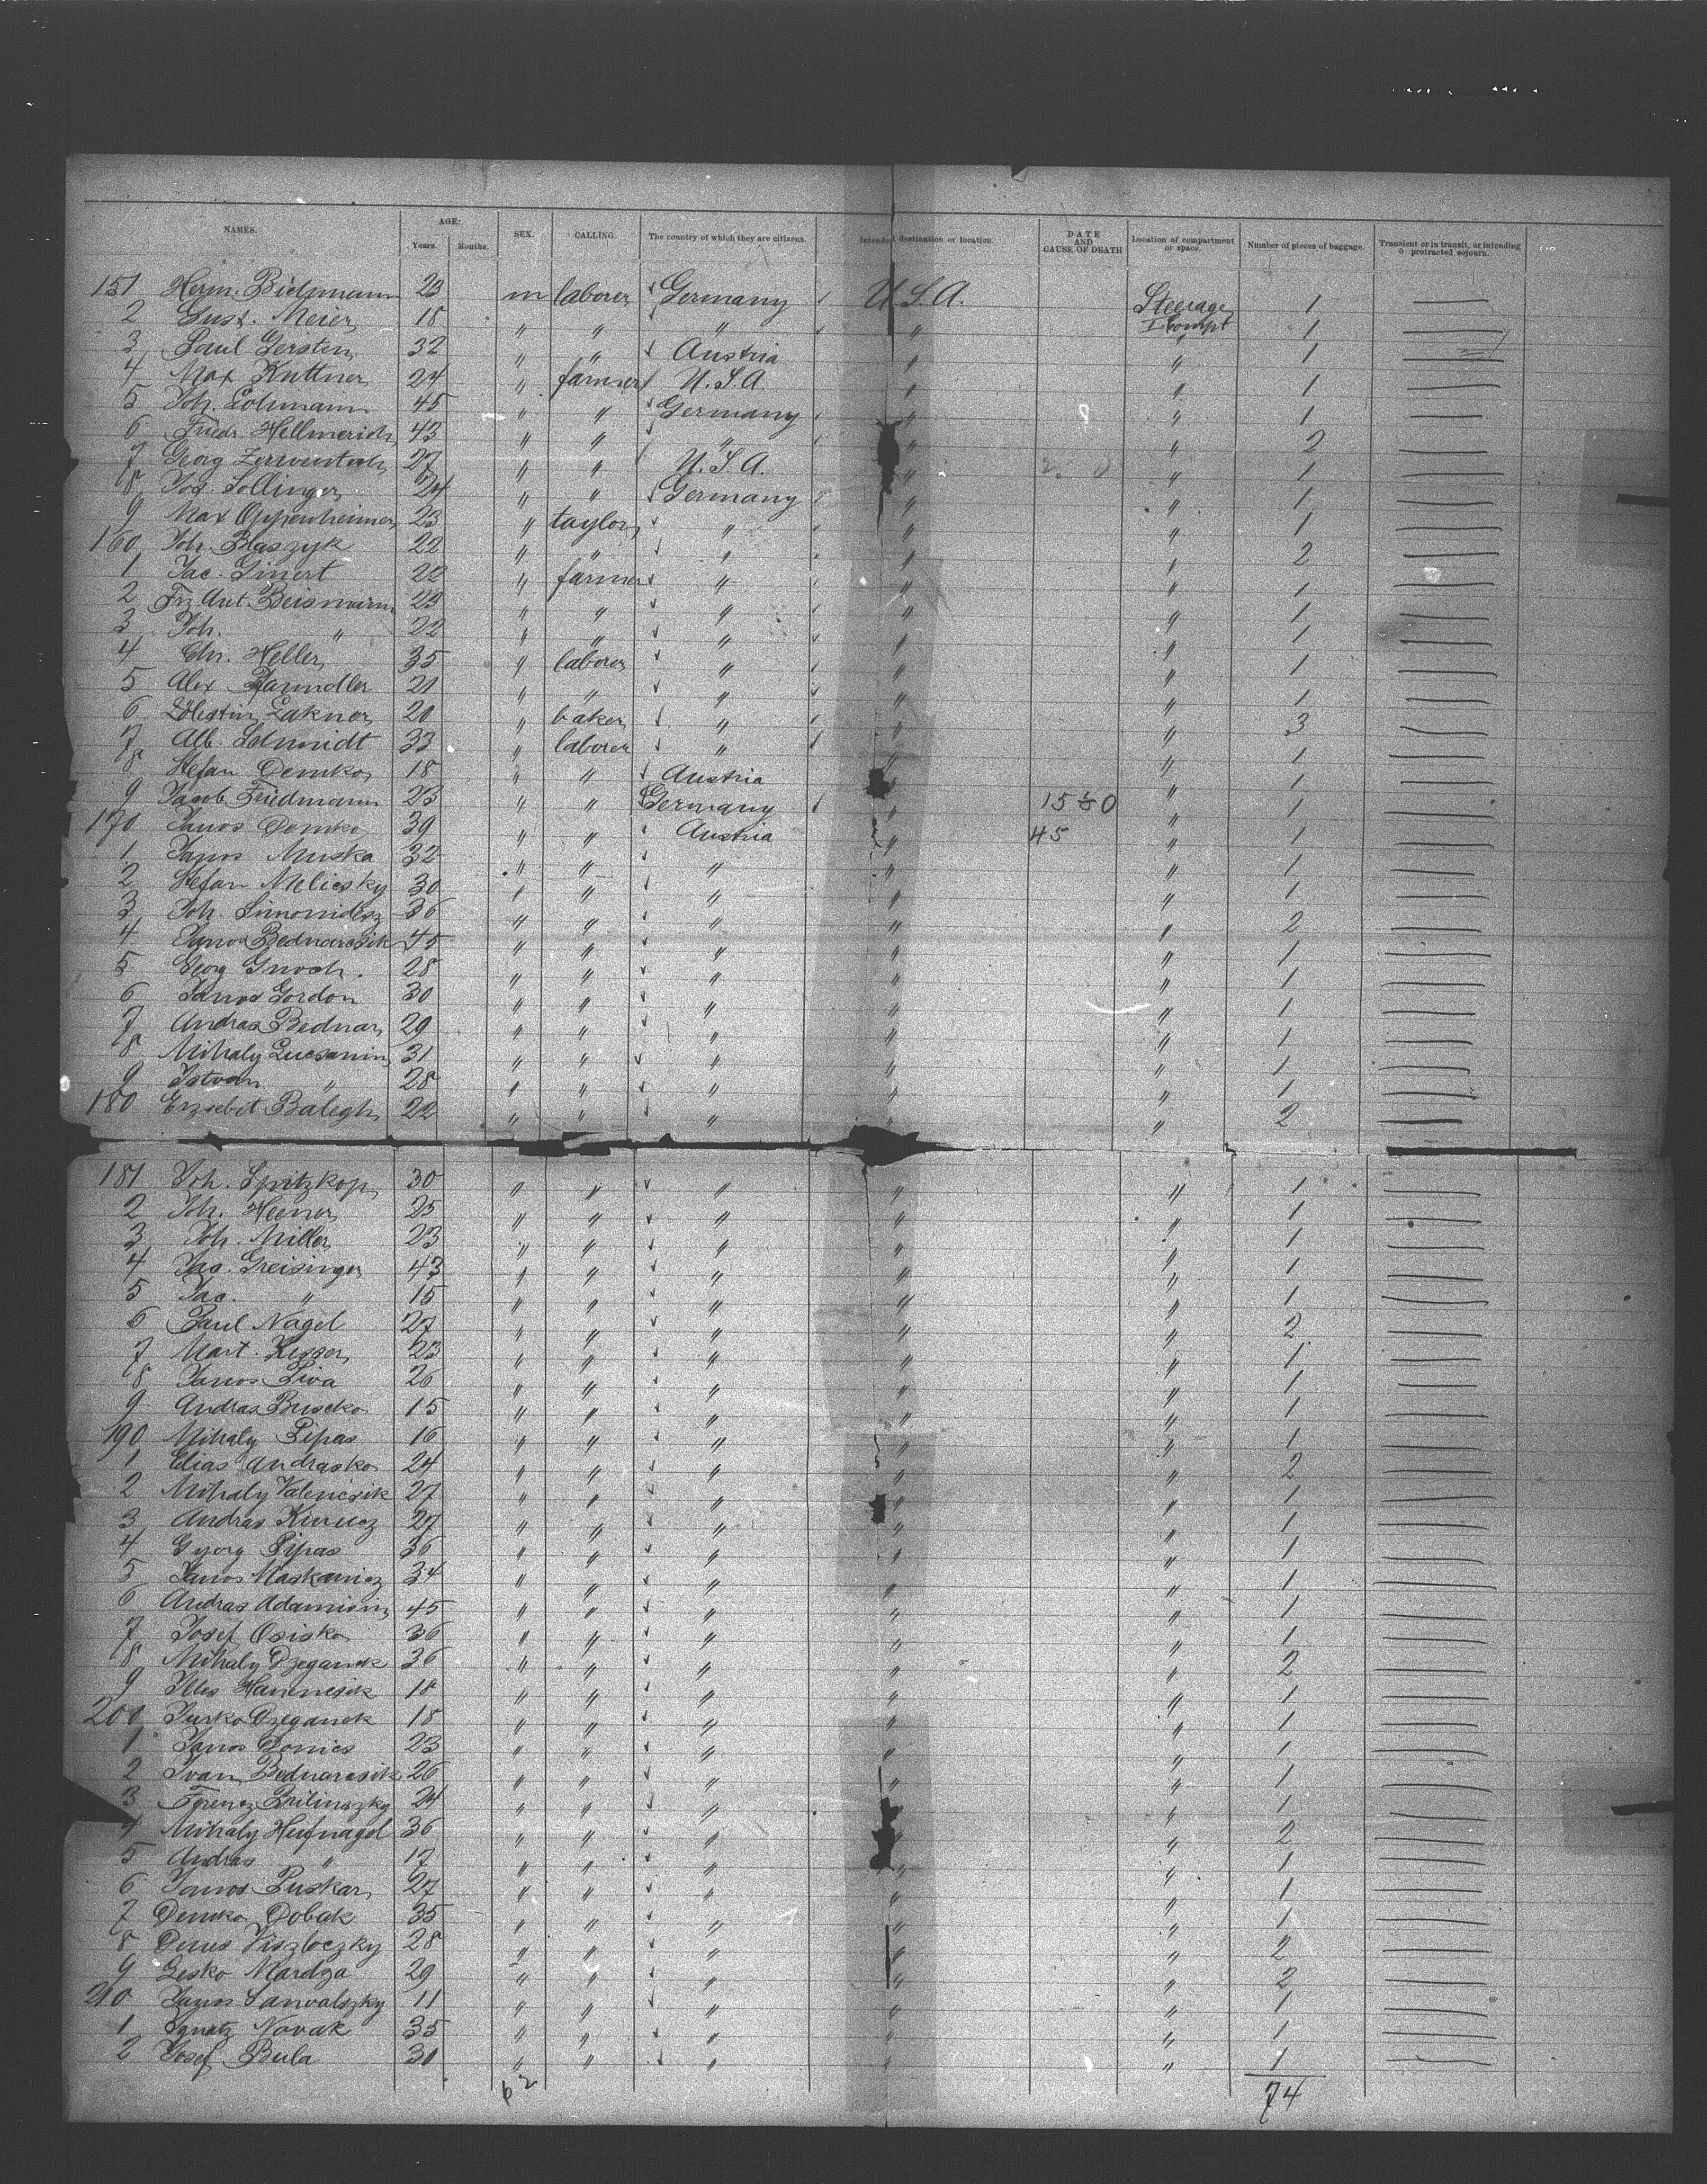 NAMES. AGE: Years. Months. SEX. CALLING. The country of which they are citizens. Intended destination or location. DATE AND CAUSE OF DEATH Location of compartment or space. Number of pieces of baggage. Transient or in transit, or intending protracted sojourn.
151 Herm. 23 m laborer Germany U.S.A. Steerage 1
2 Gust. Meier 18 " " " " I. Compt 1
3 Paul Gersten 32 " " Austria " " 1
4 Max Kuttner 24 " farmer U.S.A. " " 1
5 Joh. Lohmann 45 " " Germany " " 1
6 Friedr. Hellmerich 43 " " " " " 2
7 Georg 27 " " U.S.A. " " 1
8 Jos. Sollinger 24 " " Germany " " 1
9 Max Oppenheimer 23 " taylor " " " 1
160 Joh. Blaszyk 22 " " " " " 2
1 Jac. Ginert 22 " farmer " " " 1
2 Frz. Ant. Beismann 23 " " " " " 1
3 Joh. " 22 " " " " " 1
4 Chr. Heller 35 " laborer " " " 1
5 Alex 21 " " " " " 1
6 Lakner 20 " baker " " " 3
7 Alb. Schmidt 33 " laborer " " " 1
8 Stefan Demko 18 " " Austria " " 1
9 Jacob Friedmann 23 " " Germany " 15 " 1
170 Janos Demko 39 " " Austria " 45 " 1
1 Janos Muska 32 " " " " " 1
2 Stefan Meliesky 30 " " " " " 1
3 Joh. Simonidesz 36 " " " " " 2
4 Janos Bednarcsik 45 " " " " " 1
5 Georg Gnoch. 28 " " " " " 1
6 Janos Gordon 30 " " " " " 1
7 Andras Bednar 29 " " " " " 1
8 Mihaly Lucsanin 31 " " " " " 1
9 Istvan " 28 " " " " " 1
180 Erzsebet Balegh 22 " " " " " 2
181 Joh. Spritzkop 30 " " " " " 1
2 Joh. Heener 25 " " " " " 1
3 Joh. Miller 23 " " " " " 1
4 Jac. Greisinger 43 " " " " " 1
5 Jac. " 15 " " " " " 1
6 Paul Nagel 27 " " " " " 2
7 Mart. Kesser 23 " " " " " 1
8 Janos Siva 26 " " " " " 1
9 Andras Buscko 15 " " " " " 1
190 Mihaly Pipas 16 " " " " " 1
1 Elias Andrasko 24 " " " " " 2
2 Mihaly Valencsik 27 " " " " " 1
3 Andras 27 " " " " " 1
4 Gyorg Pipas 36 " " " " " 1
5 Janos Maskanicz 34 " " " " " 1
6 Andras Adamisin 45 " " " " " 1
7 Josef Osisko 36 " " " " " 1
8 Mihaly Dzeganek 36 " " " " " 2
9 Illes Hanencsik 18 " " " " " 1
200 Jurko Dzeganek 18 " " " " " 1
1 Janos Donics 23 " " " " " 1
2 Ivan Bednarcsik 26 " " " " " 1
3 Ferencz Bilinszky 24 " " " " " 1
4 Mihaly Hufnagel 36 " " " " " 2
5 Andras " 17 " " " " " 1
6 Janos Puskar 27 " " " " " 1
7 Demko Dobak 35 " " " " " 1
8 Denes Viszloczky 28 " " " " " 2
9 Lesko Mardza 29 " " " " " 2
210 Janos Sanvalszky 11 " " " " " 1
1 Ignatz Novak 35 " " " " " 1
2 Josef Bula 30 " " " " " 1
62 74